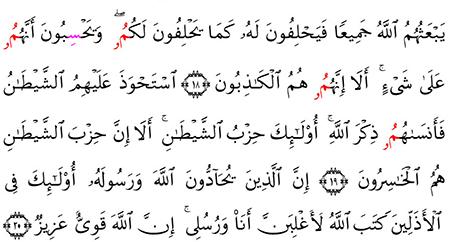 يَبْعَثُهُمُ ٱللَّهُ جَمِيعًا فَيَحْلِفُونَ لَهُۥ كَمَا يَحْلِفُونَ لَكُمُۥ ۖ وَيَحْسِبُونَ أَنَّهُمُۥ
عَلَىٰ شَىْءٍ ۚ أَلَا إِنَّهُمُۥ هُمُ ٱلْكَـٰذِبُونَ ﴿١٨﴾ ٱسْتَحْوَذَ عَلَيْهِمُ ٱلشَّيْطَـٰنُ
فَأَنسَىٰهُمُۥ ذِكْرَ ٱللَّهِ ۚ أُو۟لَـٰٓئِكَ حِزْبُ ٱلشَّيْطَـٰنِ ۚ أَلَا إِنَّ حِزْبَ ٱلشَّيْطَـٰنِ
هُمُ ٱلْخَـٰسِرُونَ ﴿١٩﴾ إِنَّ ٱلَّذِينَ يُحَآدُّونَ ٱللَّهَ وَرَسُولَهُۥ أُو۟لَـٰٓئِكَ فِى
ٱلْأَذَلِّينَ كَتَبَ ٱللَّهُ لَأَغْلِبَنَّ أَنَا۠ وَرُسُلِى ۚ إِنَّ ٱللَّهَ قَوِىٌّ عَزِيزٌ ﴿٢٠﴾